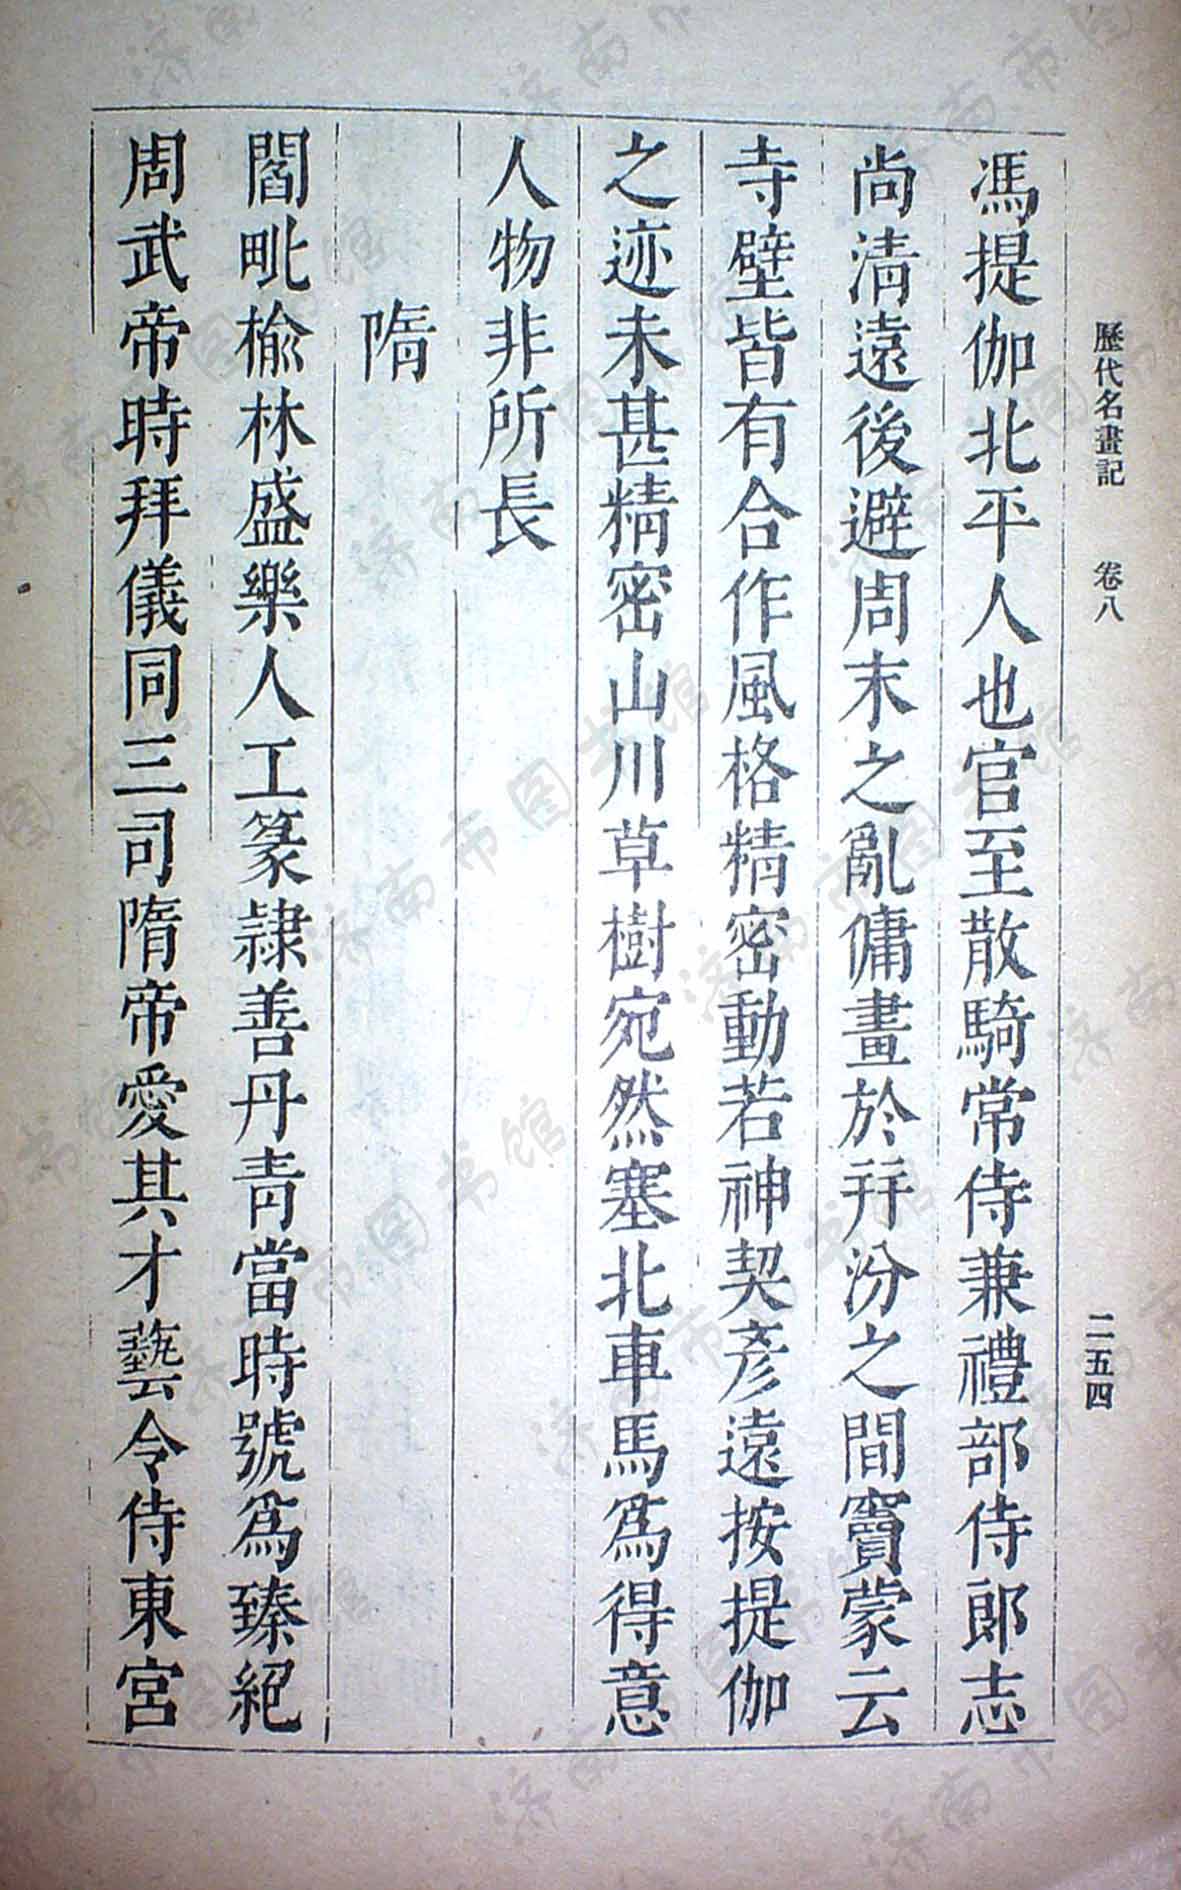 歷代名畫記　卷八　二五四
馮提伽北平人也官至散騎常侍兼禮部侍郎志
尚清遠後避周末之亂傭畫於幷汾之間竇蒙云
寺壁皆有合作風格精密動若神契彥遠按提伽
之迹未甚精密山川草樹宛然塞北車馬爲得意
人物非所長
隋
閻毗榆林盛樂人工篆隷善丹青當時號爲臻絕
周武帝時拜儀同三司隋帝愛其才藝令侍東宮
济南市图书馆